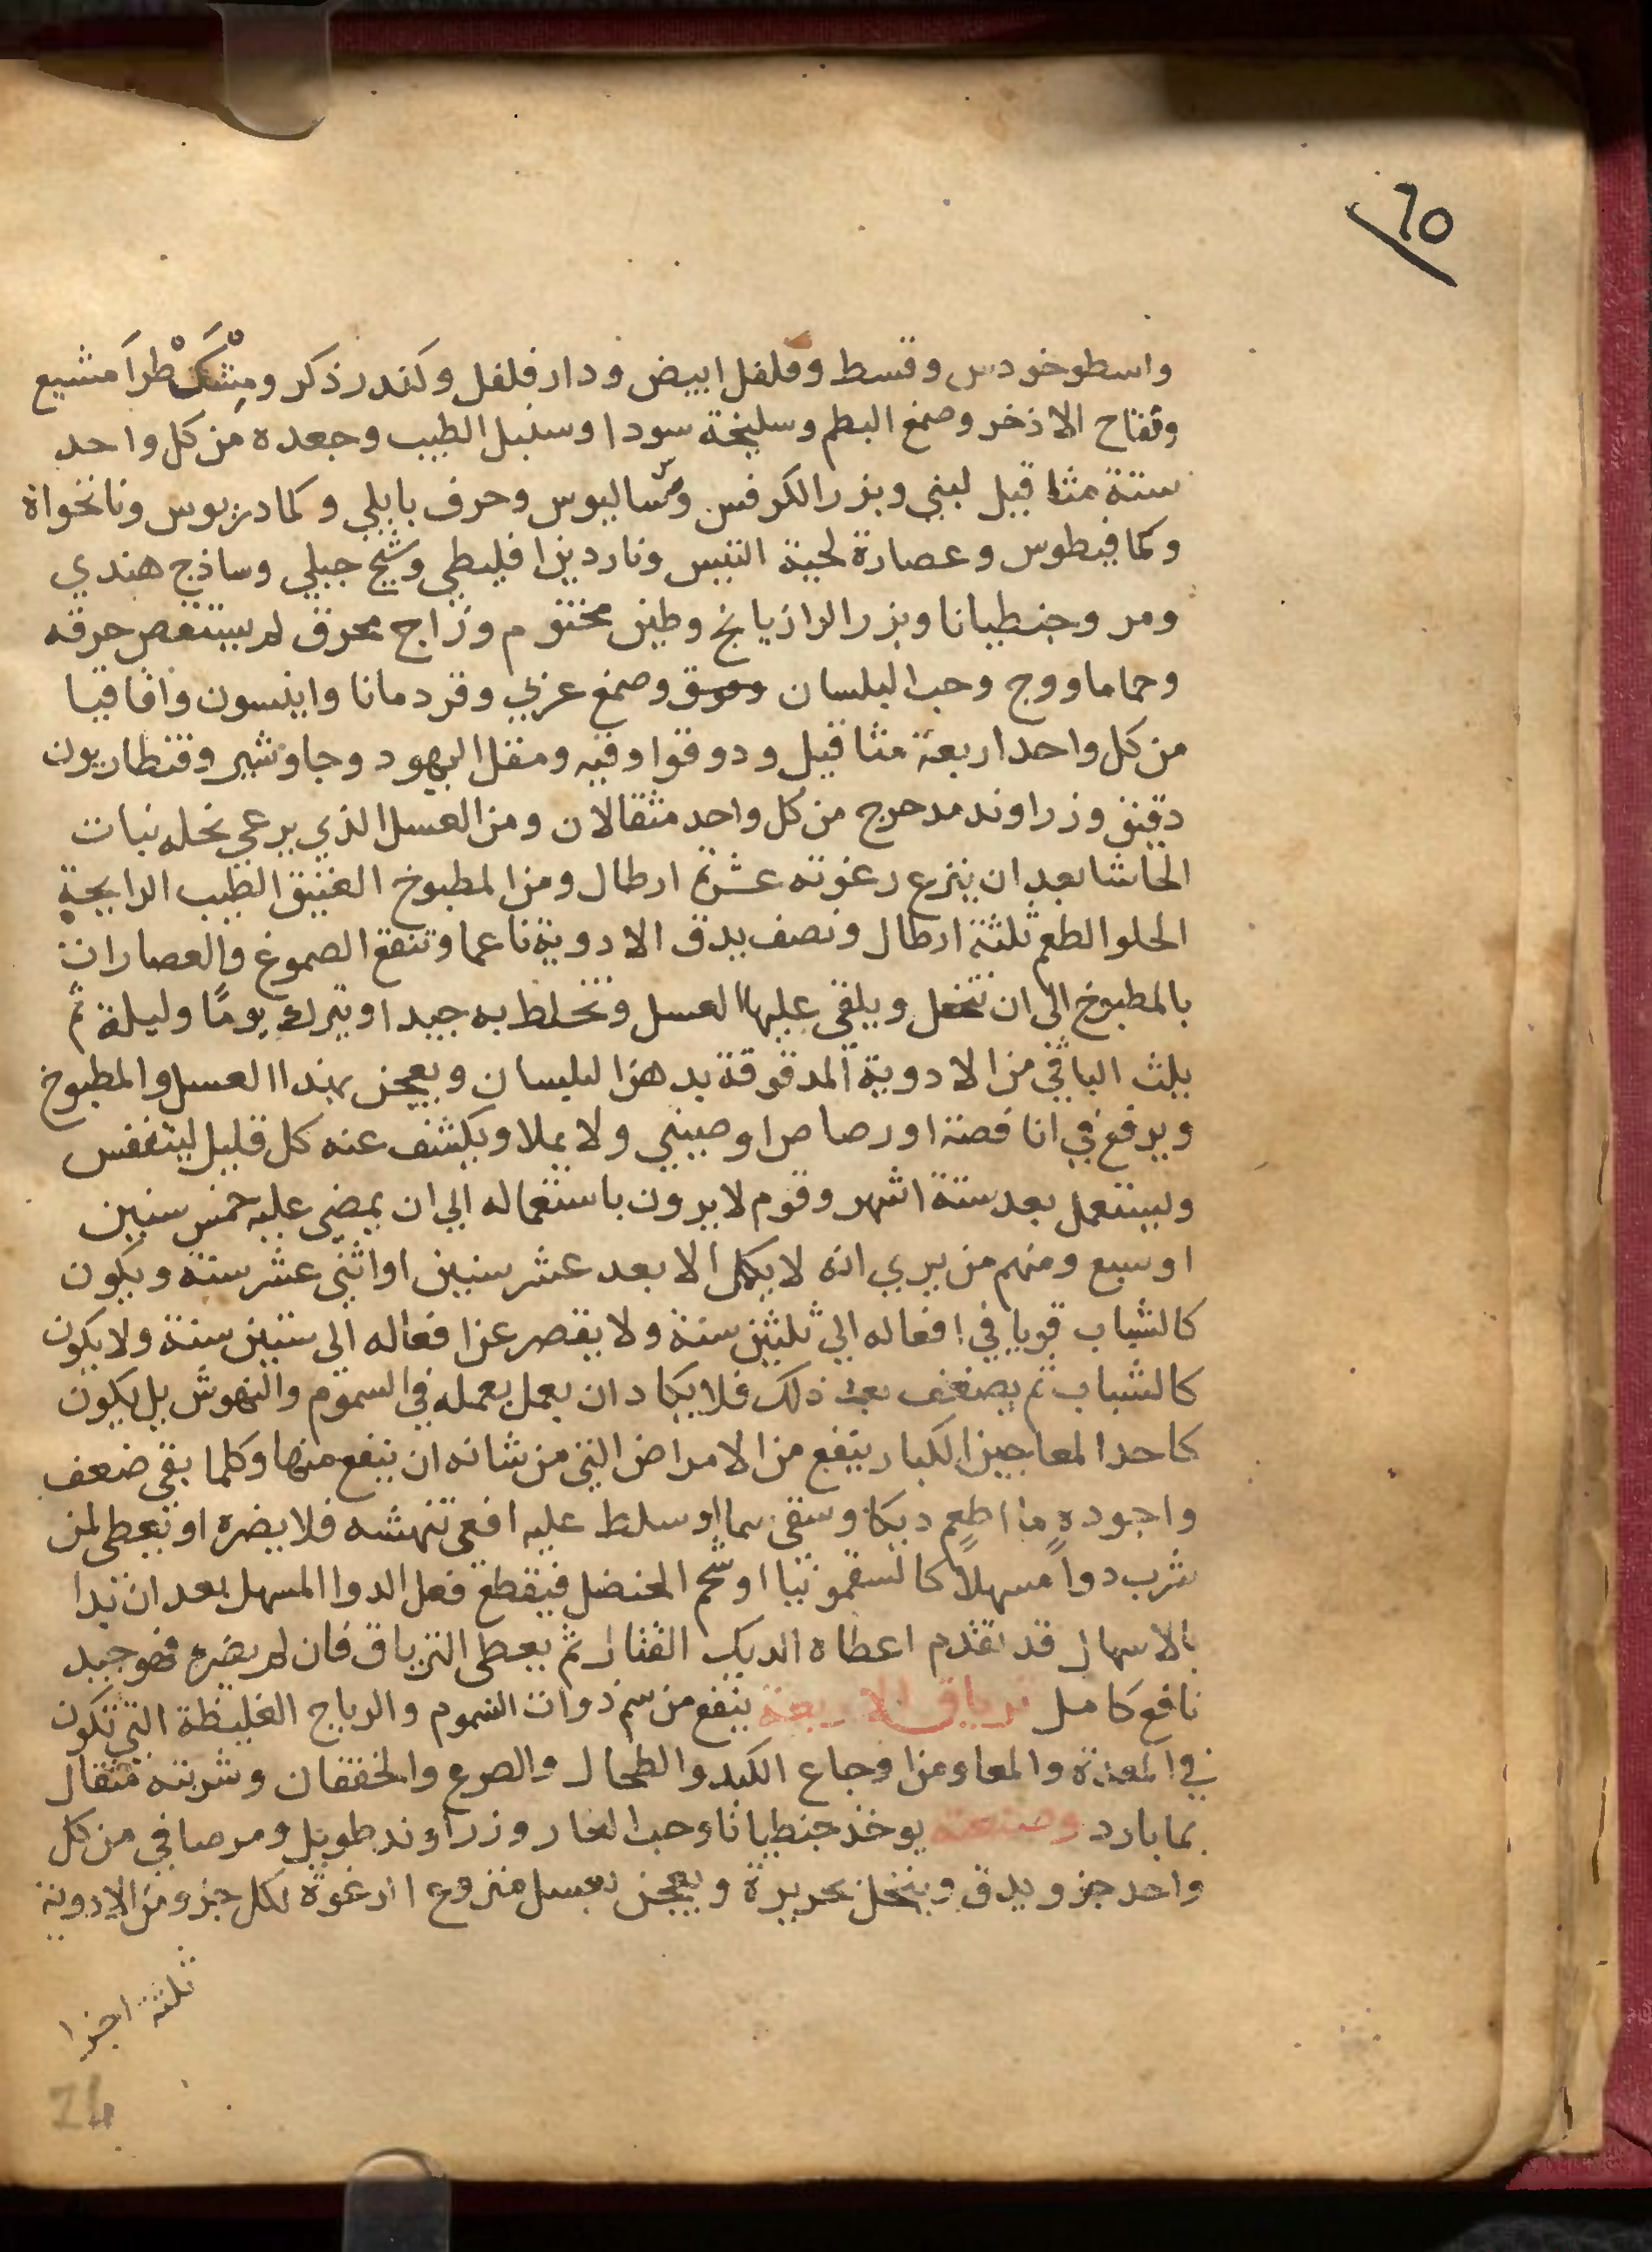 ٦٥
واسطوخودس وقسط وفلفل ابيض ودار فلفل وكندر ذكر ومِشْكَطْرَامَشيع
وتفاح الاذخر وصمغ البطم وسليخة سودا وسنبل الطيب وجعده من كل واحد
ستة مثاقيل لبني وبزر الكرفس وساليوس وحرف بابلي وكمادريوس ونانخواة
وكمافيطوس وعصارة لحية التيس وناردين افليطي وشيح جبلي وساذج هندي
ومر وجنطيانا وبزر الرازيانج وطين مختوم وزاج محرق لم يستقص حرقه
وحماما ووج وحب البلسان وموق وصمغ عربي وقردمانا وانيسون واقاقيا
من كل واحد اربعة مثاقيل ودوقوا وقيه ومقل اليهود وجاوشير وقنطاريون
دقيق وزراوند مدحرج من كل واحد مثقالان ومن العسل الذي يرعي نحله نبات
الحاشا بعد ان ينزع رغوته عشرة ارطال ومن المطبوخ العتيق الطيب الرايحة
الحلو الطعم ثلثة ارطال ونصف يدق الادوية ناعما وتنقع الصموغ والعصارات
بالمطبوخ الى ان تنحل ويلقى عليها العسل وتخلط به جيدا ويترك يومًا وليلة ثم
يلت الباقي من الادوية المدقوقة بدهن البليسان ويعجن بهذا العسل والمطبوخ
ويرفع في انا فضة او رصاص او صيني ولا يملا ويكشف عنه كل قليل ليتنفس
ويستعمل بعد ستة اشهر وقوم لا يرون باستعماله الي ان يمضي عليه خمس سنين
او سبع ومنهم من يري انه لا يكمل الا بعد عشر سنين او اثني عشر سنة ويكون
كالشباب قويا في افعاله الي ثلثين سنة ولا يقصر عن افعاله الى ستين سنة ولا يكون
كالشباب ثم يضعف بعد ذلك فلا يكاد ان يعمل بعمله في السموم والنهوش بل يكون
كاحد المعاجين الكبار ينفع من الامراض التي من شانه ان ينفع منها وكلما بقي ضعف
واجوده ما اطعم ديكا وسقى سما او سلط عليه افعى تنهشه فلا يضره او تعطي لمن
شرب دواً مسهلاً كالسقمونيا او شحم الحنضل فيقطع فعل الدوا المسهل بعد ان بدا
بالاسهال قد تقدم اعطاه الديك القتال ثم يعطى الترياق فان لم يضره فهو جيد
نافع كامل ترياق الاربعة ينفع من سم ذوات السموم والرياح الغليظة التي تكون
في المعدة والمعا ومن اوجاع الكبد والطحال والصرع والخفقان وشربته مثقال
بما بارد وصنعته يوخذ جنطيانا وحب الغار وزراوند طويل ومر صافي من كل
واحد جزو يدق وينخل بحريرة ويعجن بعسل منزوع الرغوة لكل جزو من الادوية
ثلثة اجزا
24